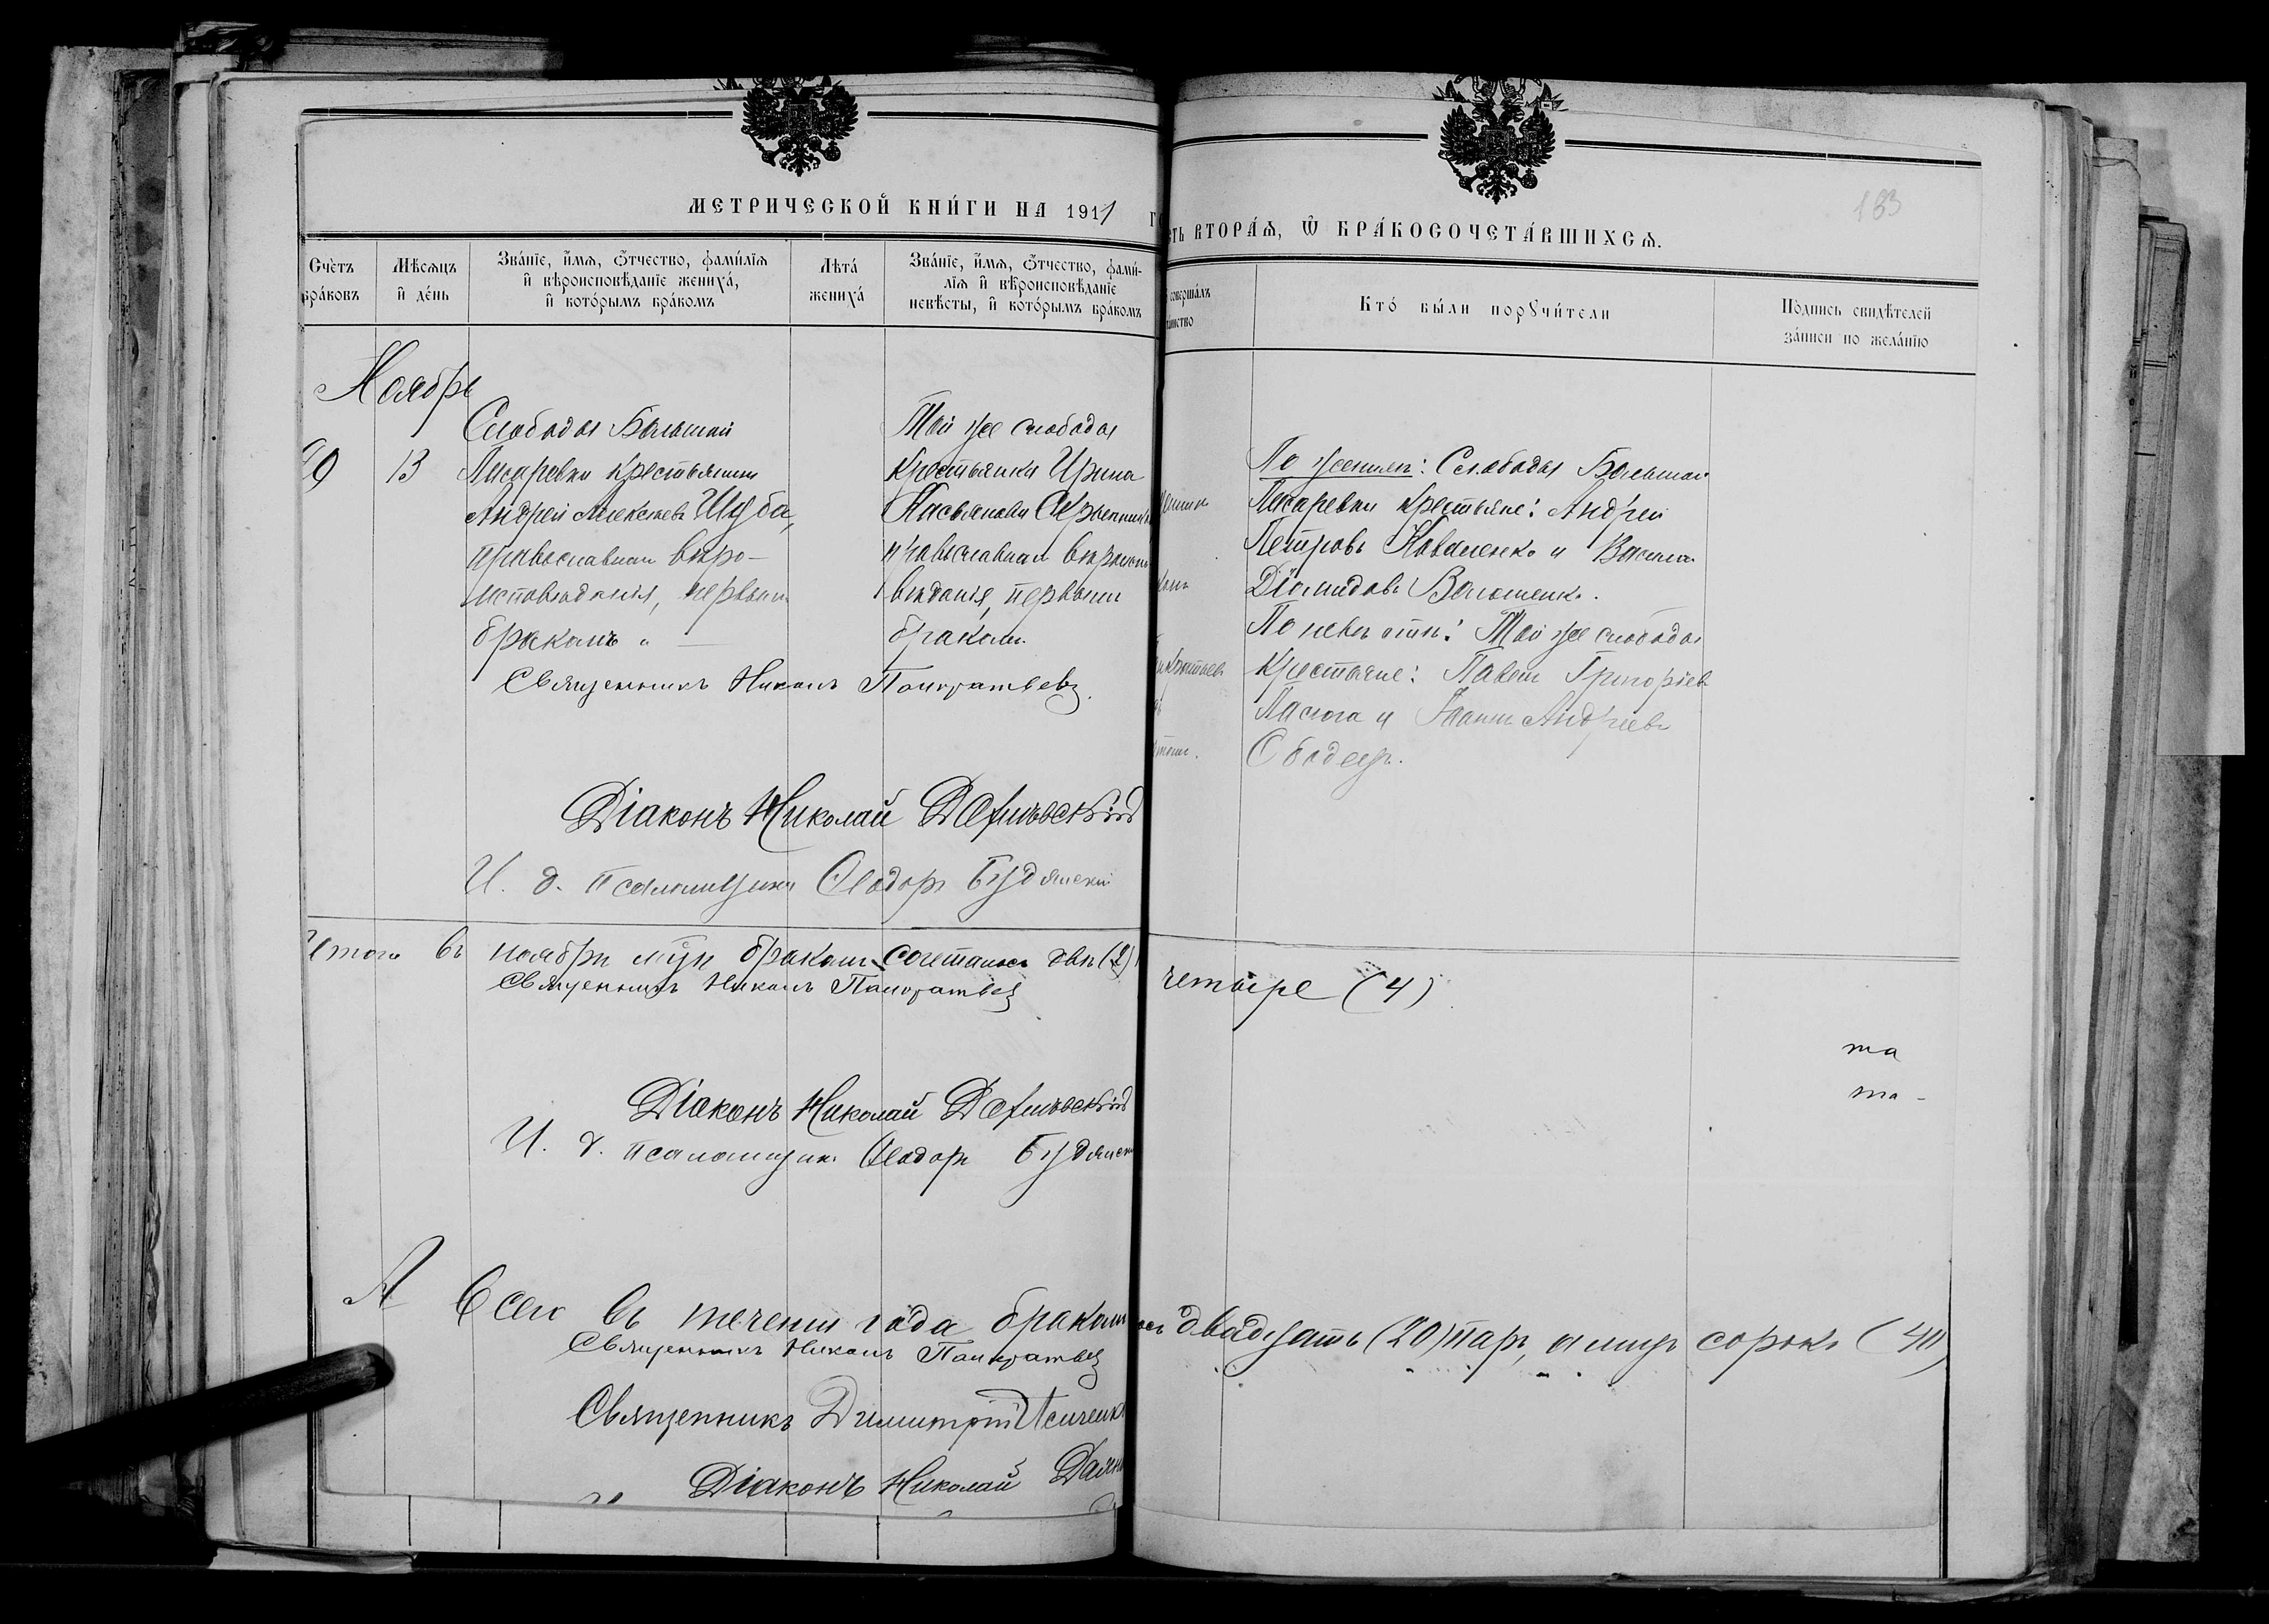 МЕТРИЧЕСКОЙ КНИ́ГИ НА 1911
сть ВТОРА́Ѧ, Ѿ БРА́КОСОЧЕТА́ВШИХСѦ.
183
Счѐтъ бра́ковъ
Мѣсѧцъ и҆ де́нь
Зва́нїе, и҆́мѧ, ѻ҆́тчество, фами́лїѧ и҆ вѣроисповѣ́данїе жениха́, и҆ кото́рымъ бра́комъ
Лѣта́ жениха́
Зва́нїе, и҆́мѧ, ѻ҆́тчество, фами́лїѧ и҆ вѣроисповѣ́данїе невѣ́сты, и҆ кото́рымъ бра́комъ
соверша́лъ
Кто́ бы́ли порꙋчи́тели
По́дпись свидѣ́телей за́писи по жела́нїю
Ноябрь
13
Слободы Большой
Писаревки крестьянинъ
Андрей Алексѣевъ Шуба,
православнаго вѣро-
исповѣданія, первымъ
бракомъ
Той же слободы
крестьянка Ирина
православнаго
вѣданія, первымъ
бракомъ
По женихѣ: Слободы Большой
Писаревки крестьяне: Андрей
Петровъ Коваленко и
Діомидовъ Волошенко.
По невѣстѣ: Той же слободы
крестьяне: Павелъ Григорьевъ
и Иоаннъ Андреевъ
Священникъ Никонъ Панкратьевъ.
Діаконъ Николай
И. д. псаломщика Ѳеодоръ Будянскій
Итого въ ноябрѣ мцѣ бракомъ сочеталось двѣ (2)
четыре (4)
Священникъ Никонъ Панкратьевъ
та
та -
Діаконъ Николай
И. д. псаломщика Ѳеодоръ
А всего въ теченіи года бракомъ
двадцать (20) паръ, а лицъ сорокъ (40)
Священникъ Никонъ Панкратьевъ
Священникъ Димитрій
Діаконъ Николай